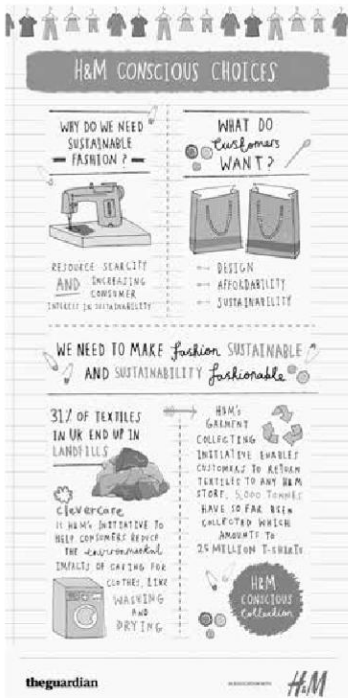 H&M CONSCIOUS CHOICES
WHY DO WE NEED
SUSTAINABLE
FASHION?
WHAT DO
Customers
WANT?
RESOURCE SCARCITY
AND INCREASING
CONSUMER
INTEREST IN SUSTAINABILITY
DESIGN
AFFORDABILITY
SUSTAINABILITY
WE NEED TO MAKE fashion SUSTAINABLE
AND SUSTAINABILITY fashionable
31% OF TEXTILES
IN UK END UP IN
LANDFILLS
clevercare
IS H&M'S INITIATIVE TO
HELP CONSUMERS REDUCE
THE environmental
IMPACTS OF CARING FOR
CLOTHES, LIKE
WASHING
AND
DRYING
H&M'S
GARMENT
COLLECTING
INITIATIVE ENABLES
CUSTOMERS TO RETURN
TEXTILES TO ANY H&M
STORE. 5,000 TONNES
HAVE SO FAR BEEN
COLLECTED WHICH
AMOUNTS TO
25 MILLION T-SHIRTS
H&M
CONSCIOUS
Collection
theguardian
H&M